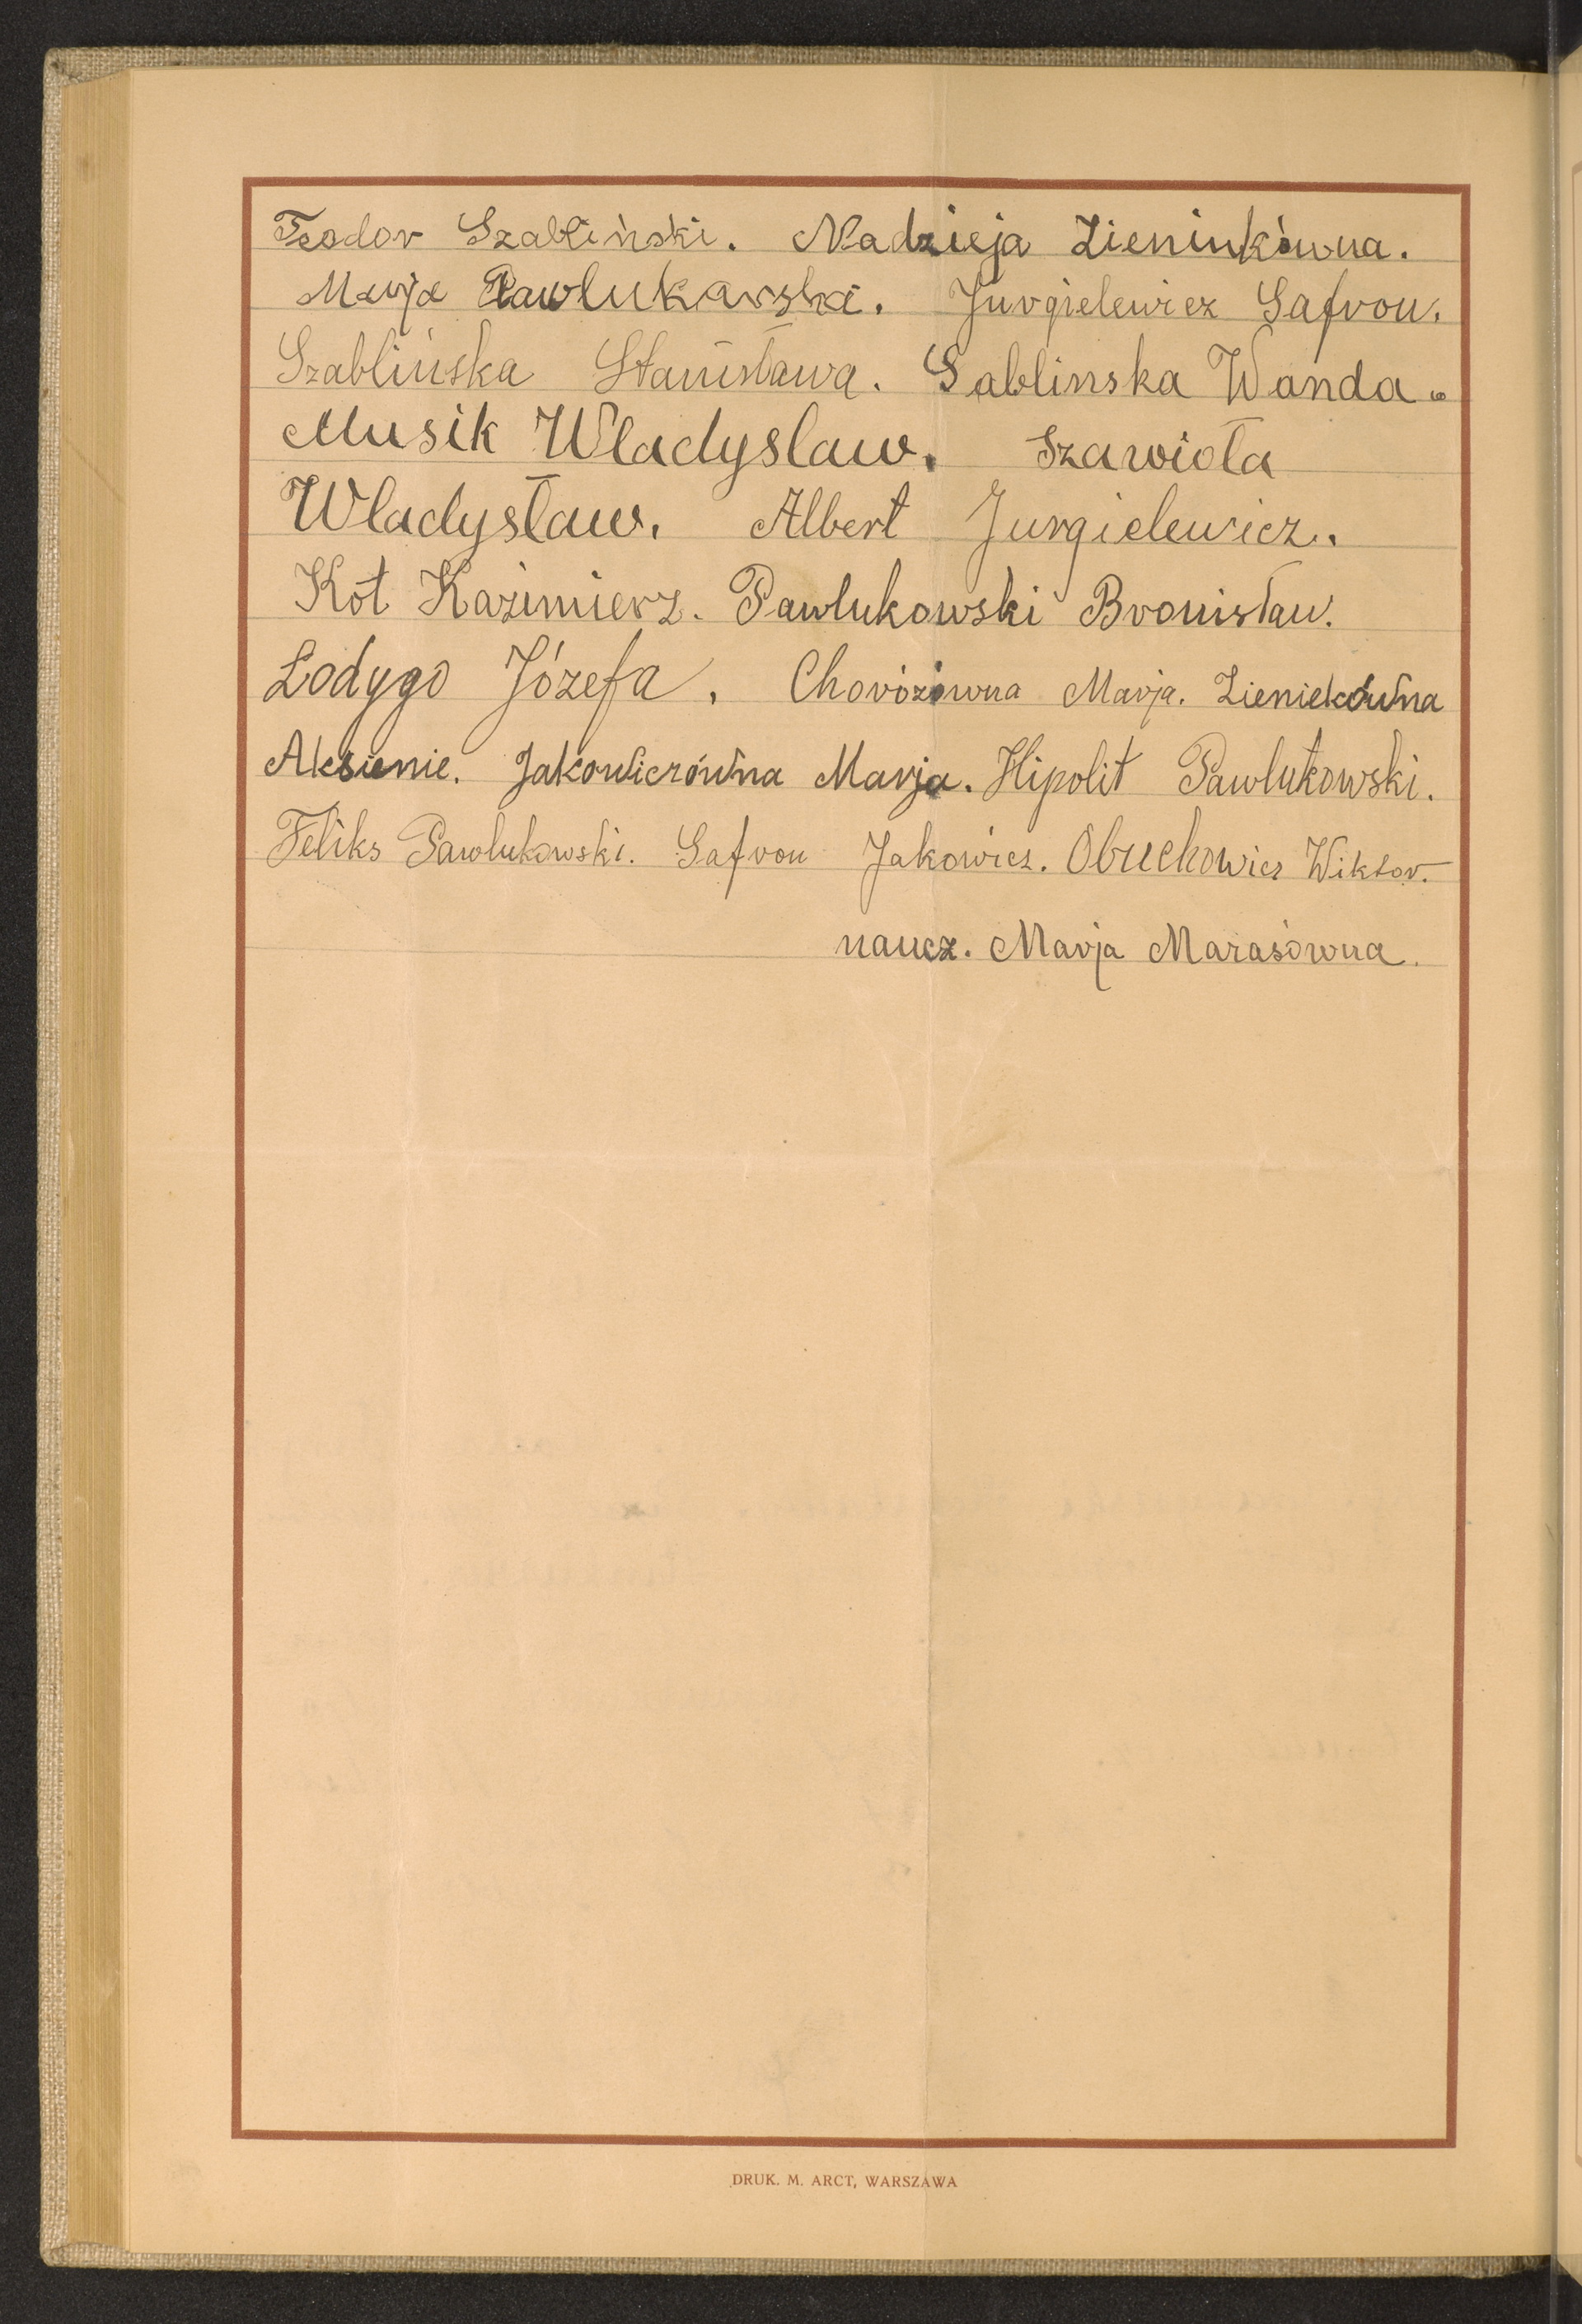 Teodor Szabliński. Nadzieja Zieninkówna.
Marja Pawlukarska. Jurgielewicz Safron.
Szablińska Stanisława. Sablinska Wanda.
Musik Wladyslaw. Szawioła
Wladysław. Albert Jurgielewicz.
Kot Kazimierz. Pawlukowski Bronisław.
Lodygo Józefa. Chorózówna Marja. Zieniekówna
Aksienie. Jakowiczówna Marja. Hipolit Pawlukowski.
Feliks Pawlukowski. Safron Jakowicz. Obuchowicz Wiktor.
naucz. Marja Marasówna.
DRUK. M. ARCT, WARSZAWA